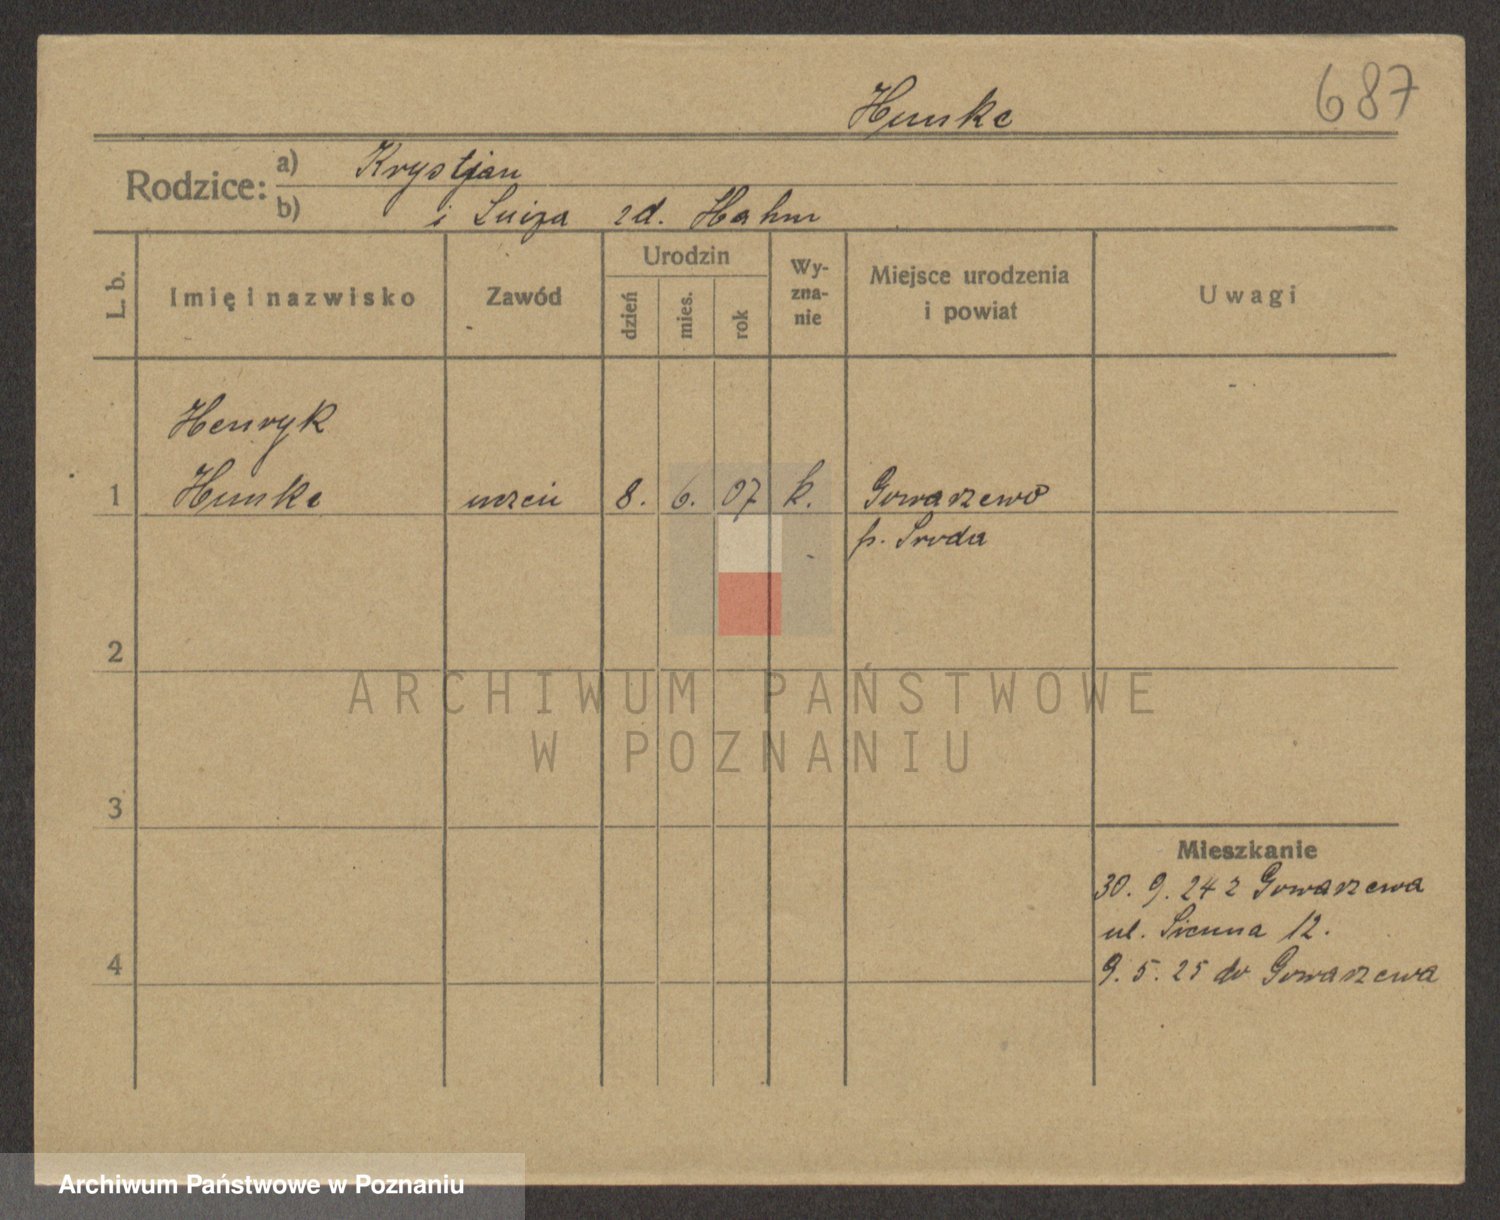 687
Hunke
Rodzice: a) Krystjan
b) i Luiza zd. Hahn
L. b.
Imię i nazwisko
Zawód
Urodzin
dzień
mies.
rok
Wy-
zna-
nie
Miejsce urodzenia
i powiat
Uwagi
Henryk
1 Hunke uczeń 8. 6. 07 k. Gowarzewo
p. Środa
2
3
4
Mieszkanie
30. 9. 24 z Gowarzewa
ul. Sienna 12.
9. 5. 25 do Gowarzewa
ARCHIWUM PAŃSTWOWE
W POZNANIU
Archiwum Państwowe w Poznaniu